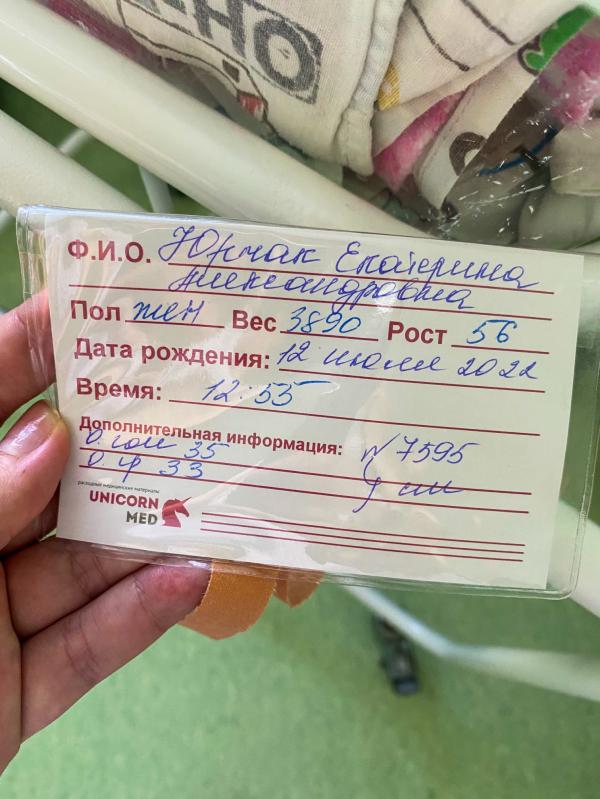 -НО
Ф.И.О. Юрчак Екатерина
Александровна
Пол жен Вес 3890 Рост 56
Дата рождения: 12 июля 2022
Время: 12:55
Дополнительная информация:
О. гол 35 N 7595
О. гр 33
расходные медицинские материалы
UNICORN
MED